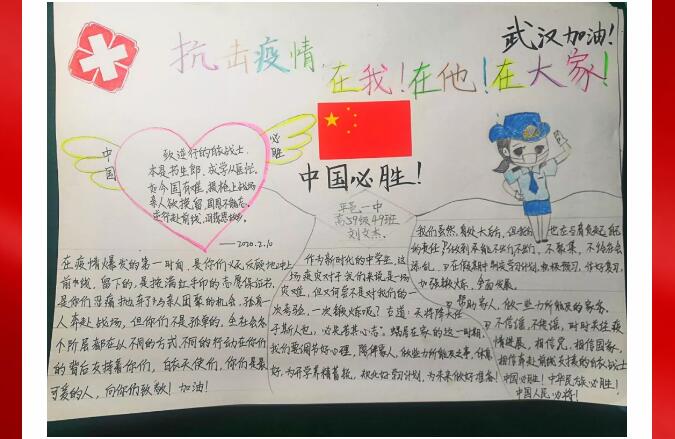 武汉加油!
抗击疫情
在我!在他!在大家!
中国
必胜
致逆行的白衣战士
本是书生郎,或学从医忙。
古今国有难,披袍上战场
亲人欲挽留
逆行赴前线
——2020.2.10
中国必胜!
平邑一中
高59级49班
刘文杰。
在疫情爆发的第一时间,是你们义无反顾地冲上
前线,留下的,是按满红手印的志愿保证书。
是你们忍痛
与亲人团聚的机会,孤身一
人奔赴战场,但你们不是孤单的。全社会各
个阶层都在以不同的方式,不同的行动在你们
的背后支持着你们,白衣天使们,你们是最
可爱的人,向你们致敬!加油!
作为新时代的中学生,这
场疫灾对于我们来说是一场
灾难,但又何尝不是对我们的一
次考验,一次锻炼呢?古道:天将降大任
于斯人也,必先苦其心志。蜗居在家的这一时期,
我们要调节好心理,陪伴家人,做些力所能及之事,休息
好,为开学养精蓄锐,规划好学习计划,为未来做好准备!
我们虽然身处大后
的责任
不聚集,不给社会
添乱。
在假期中制定学习计划,积极预习,作好复习,
加强锻炼,全面发展。
帮助家人,做一些力所能及的家务。
不信谣,不传谣,时时关注疫
情进展,相信党,相信国家,
相信奔赴前线支援的白衣战士
中国必胜!中华民族必胜!
中国人民必将!